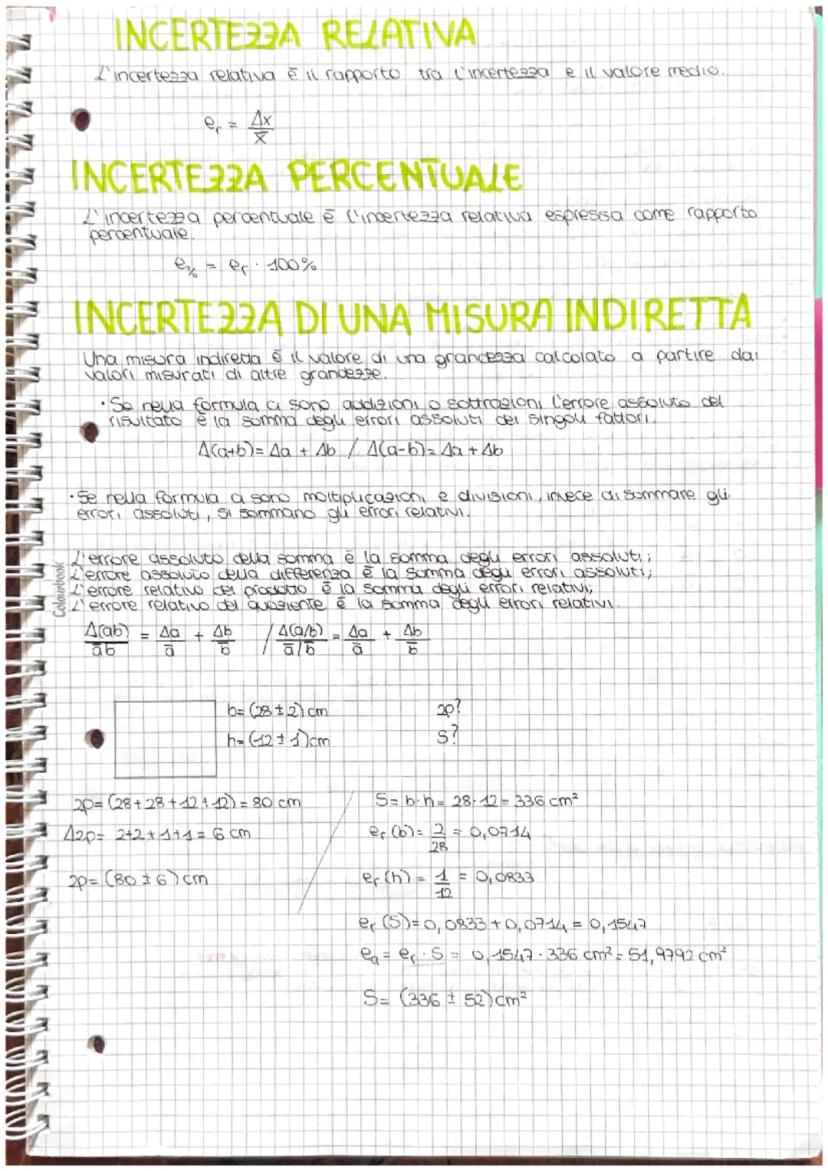 INCERTEZZA RELATIVA
L'incertezza relativa è il rapporto tra l'incertezza e il valore medio.
eᵣ = Δx / x̄
INCERTEZZA PERCENTUALE
L'incertezza percentuale è l'incertezza relativa espressa come rapporto
percentuale.
e% = eᵣ · 100%
INCERTEZZA DI UNA MISURA INDIRETTA
Una misura indiretta è il valore di una grandezza calcolato a partire dai
valori misurati di altre grandezze.
· Se nella formula ci sono addizioni o sottrazioni l'errore assoluto del
risultato è la somma degli errori assoluti dei singoli fattori.
Δ(a+b) = Δa + Δb / Δ(a-b) = Δa + Δb
· Se nella formula ci sono moltiplicazioni e divisioni, invece di sommare gli
errori assoluti, si sommano gli errori relativi.
L'errore assoluto della somma è la somma degli errori assoluti;
L'errore assoluto della differenza è la somma degli errori assoluti;
L'errore relativo del prodotto è la somma degli errori relativi;
L'errore relativo del quoziente è la somma degli errori relativi.
Colourbook
Δ(ab)/āb̄ = Δa/ā + Δb/b̄ / Δ(a/b)/ā/b̄ = Δa/ā + Δb/b̄
b= (28 ± 2) cm 2p?
h= (12 ± 1) cm S?
2p= (28+28+12+12) = 80 cm
Δ2p= 2+2+1+1 = 6 cm
2p= (80 ± 6) cm
S= b·h = 28·12 = 336 cm²
eᵣ (b) = 2/28 = 0,0714
eᵣ (h) = 1/12 = 0,0833
eᵣ (S) = 0,0833 + 0,0714 = 0,1547
eₐ = eᵣ · S = 0,1547 · 336 cm² = 51,9792 cm²
S= (336 ± 52) cm²